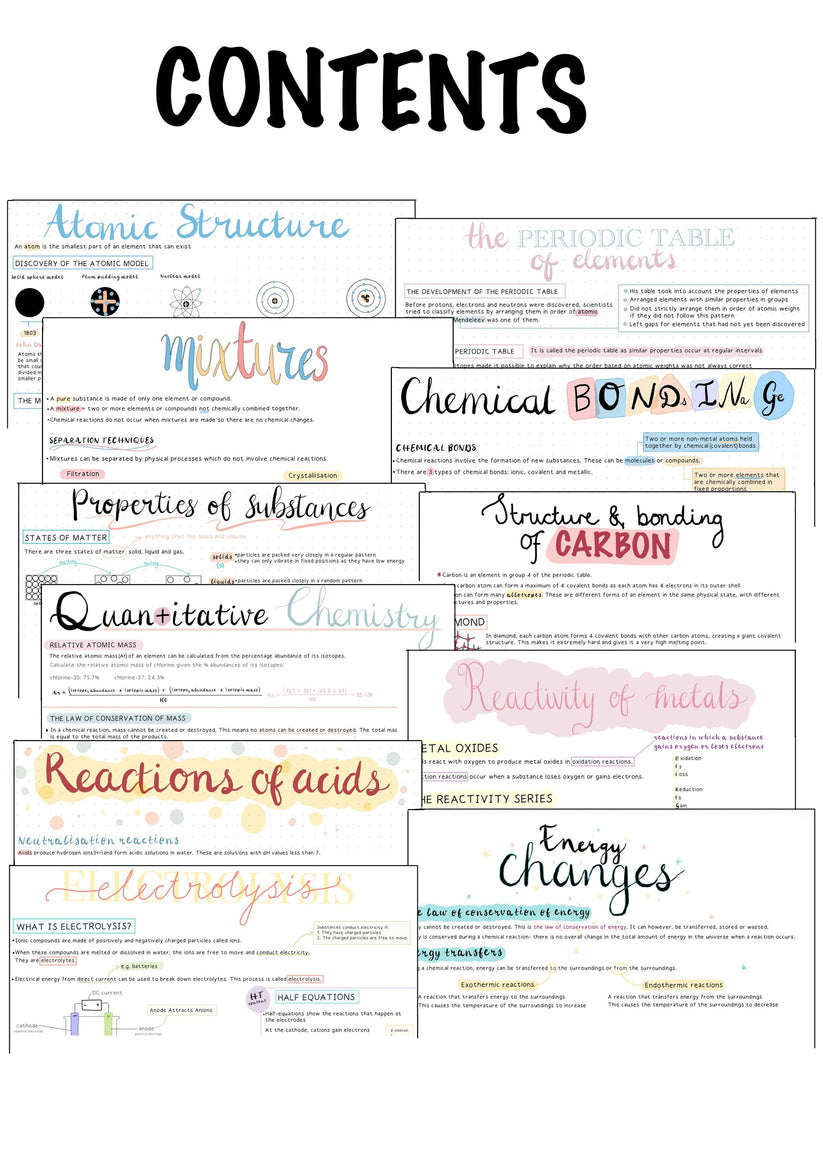 CONTENTS
Atomic Structure
An atom is the smallest part of an element that can exist
DISCOVERY OF THE ATOMIC MODEL
Solid sphere model
Plum pudding model
Nuclear model
1803
John
Atoms
be small
that coul
divided in
smaller p
THE M
the PERIODIC TABLE
of elements
THE DEVELOPMENT OF THE PERIODIC TABLE
Before protons, electrons and neutrons were discovered, scientists
tried to classify elements by arranging them in order of atomic
Mendeleev was one of them.
His table took into account the properties of elements
Arranged elements with similar properties in groups
Did not strictly arrange them in order of atomic weight
if they did not follow this pattern
Left gaps for elements that had not yet been discovered
PERIODIC TABLE
It is called the periodic table as similar properties occur at regular intervals
stopes made it possible to explain why the order based on atomic weights was not always correct
Mixtures
•A pure substance is made of only one element or compound.
•A mixture = two or more elements or compounds not chemically combined together.
•Chemical reactions do not occur when mixtures are made so there are no chemical changes.
SEPARATION TECHNIQUES
•Mixtures can be separated by physical processes which do not involve chemical reactions
Filtration
Crystallisation
Chemical BONDsINaGe
Two or more non-metal atoms held
together by chemical(covalent)bonds
CHEMICAL BONDS
•Chemical reactions involve the formation of new substances. These can be molecules or compounds.
•There are 3 types of chemical bonds: ionic, covalent and metallic.
Two or more elements that
are chemically combined in
fixed proportions
Properties of substances
STATES OF MATTER
anything that has mass and volume
There are three states of matter: solid, liquid and gas.
melting
boiling
solids
(s)
•particles are packed very closely in a regular pattern
•they can only vibrate in fixed positions as they have low energy
liquids
•particles are packed closely in a random pattern
Structure & bonding
of CARBON
Carbon is an element in group 4 of the periodic table.
carbon atom can form a maximum of 4 covalent bonds as each atom has 4 electrons in its outer shell
on can form many allotropes. These are different forms of an element in the same physical state, with different
uctures and properties.
MOND
In diamond, each carbon atom forms 4 covalent bonds with other carbon atoms, creating a giant covalent
structure. This makes it extremely hard and gives it a very high melting point.
Quantitative Chemistry
RELATIVE ATOMIC MASS
The relative atomic mass(Ar)of an element can be calculated from the percentage abundance of its isotopes.
Calculate the relative atomic mass of chlorine given the % abundances of its isotopes:
chlorine-35: 75.7% chlorine-37: 24.3%
Ar = (isotope abundance x isotopic mass) + (isotope abundance x isotopic mass)
100
THE LAW OF CONSERVATION OF MASS
•In a chemical reaction, mass cannot be created or destroyed. This means no atoms can be created or destroyed. The total mass
is equal to the total mass of the products.
Reactivity of metals
ETAL OXIDES
reactions in which a substance
gains oxygen or loses electrons
ls react with oxygen to produce metal oxides in oxidation reactions.
ction reactions occur when a substance loses oxygen or gains electrons.
Oxidation
Is
Loss
Reduction
Is
Gain
HE REACTIVITY SERIES
Reactions of acids
Neutralisation reactions
Acids produce hydrogen ions(H+)and form acidic solutions in water. These are solutions with pH values less than 7.
Energy
changes
e law of conservation of energy
y cannot be created or destroyed. This is the law of conservation of energy. It can however, be transferred, stored or wasted.
y is conserved during a chemical reaction- there is no overall change in the total amount of energy in the universe when a reaction occurs.
ergy transfers
g a chemical reaction, energy can be transferred to the surroundings or from the surroundings.
Exothermic reactions
Endothermic reactions
A reaction that transfers energy to the surroundings
This causes the temperature of the surroundings to increase
A reaction that transfers energy from the surroundings
This causes the temperature of the surroundings to decrease
ELECTROLYSIS
electrolysis
WHAT IS ELECTROLYSIS?
Substances conduct electricity if:
1. They have charged particles
2. The charged particles are free to move
•Ionic compounds are made of positively and negatively charged particles called ions.
•When these compounds are melted or dissolved in water, the ions are free to move and conduct electricity.
They are electrolytes.
e.g. batteries
•Electrical energy from direct current can be used to break down electrolytes. This process is called electrolysis.
DC current
Anode Attracts Anions
cathode
anode
HT
content
HALF EQUATIONS
•Half-equations show the reactions that happen at
the electrodes
At the cathode, cations gain electrons